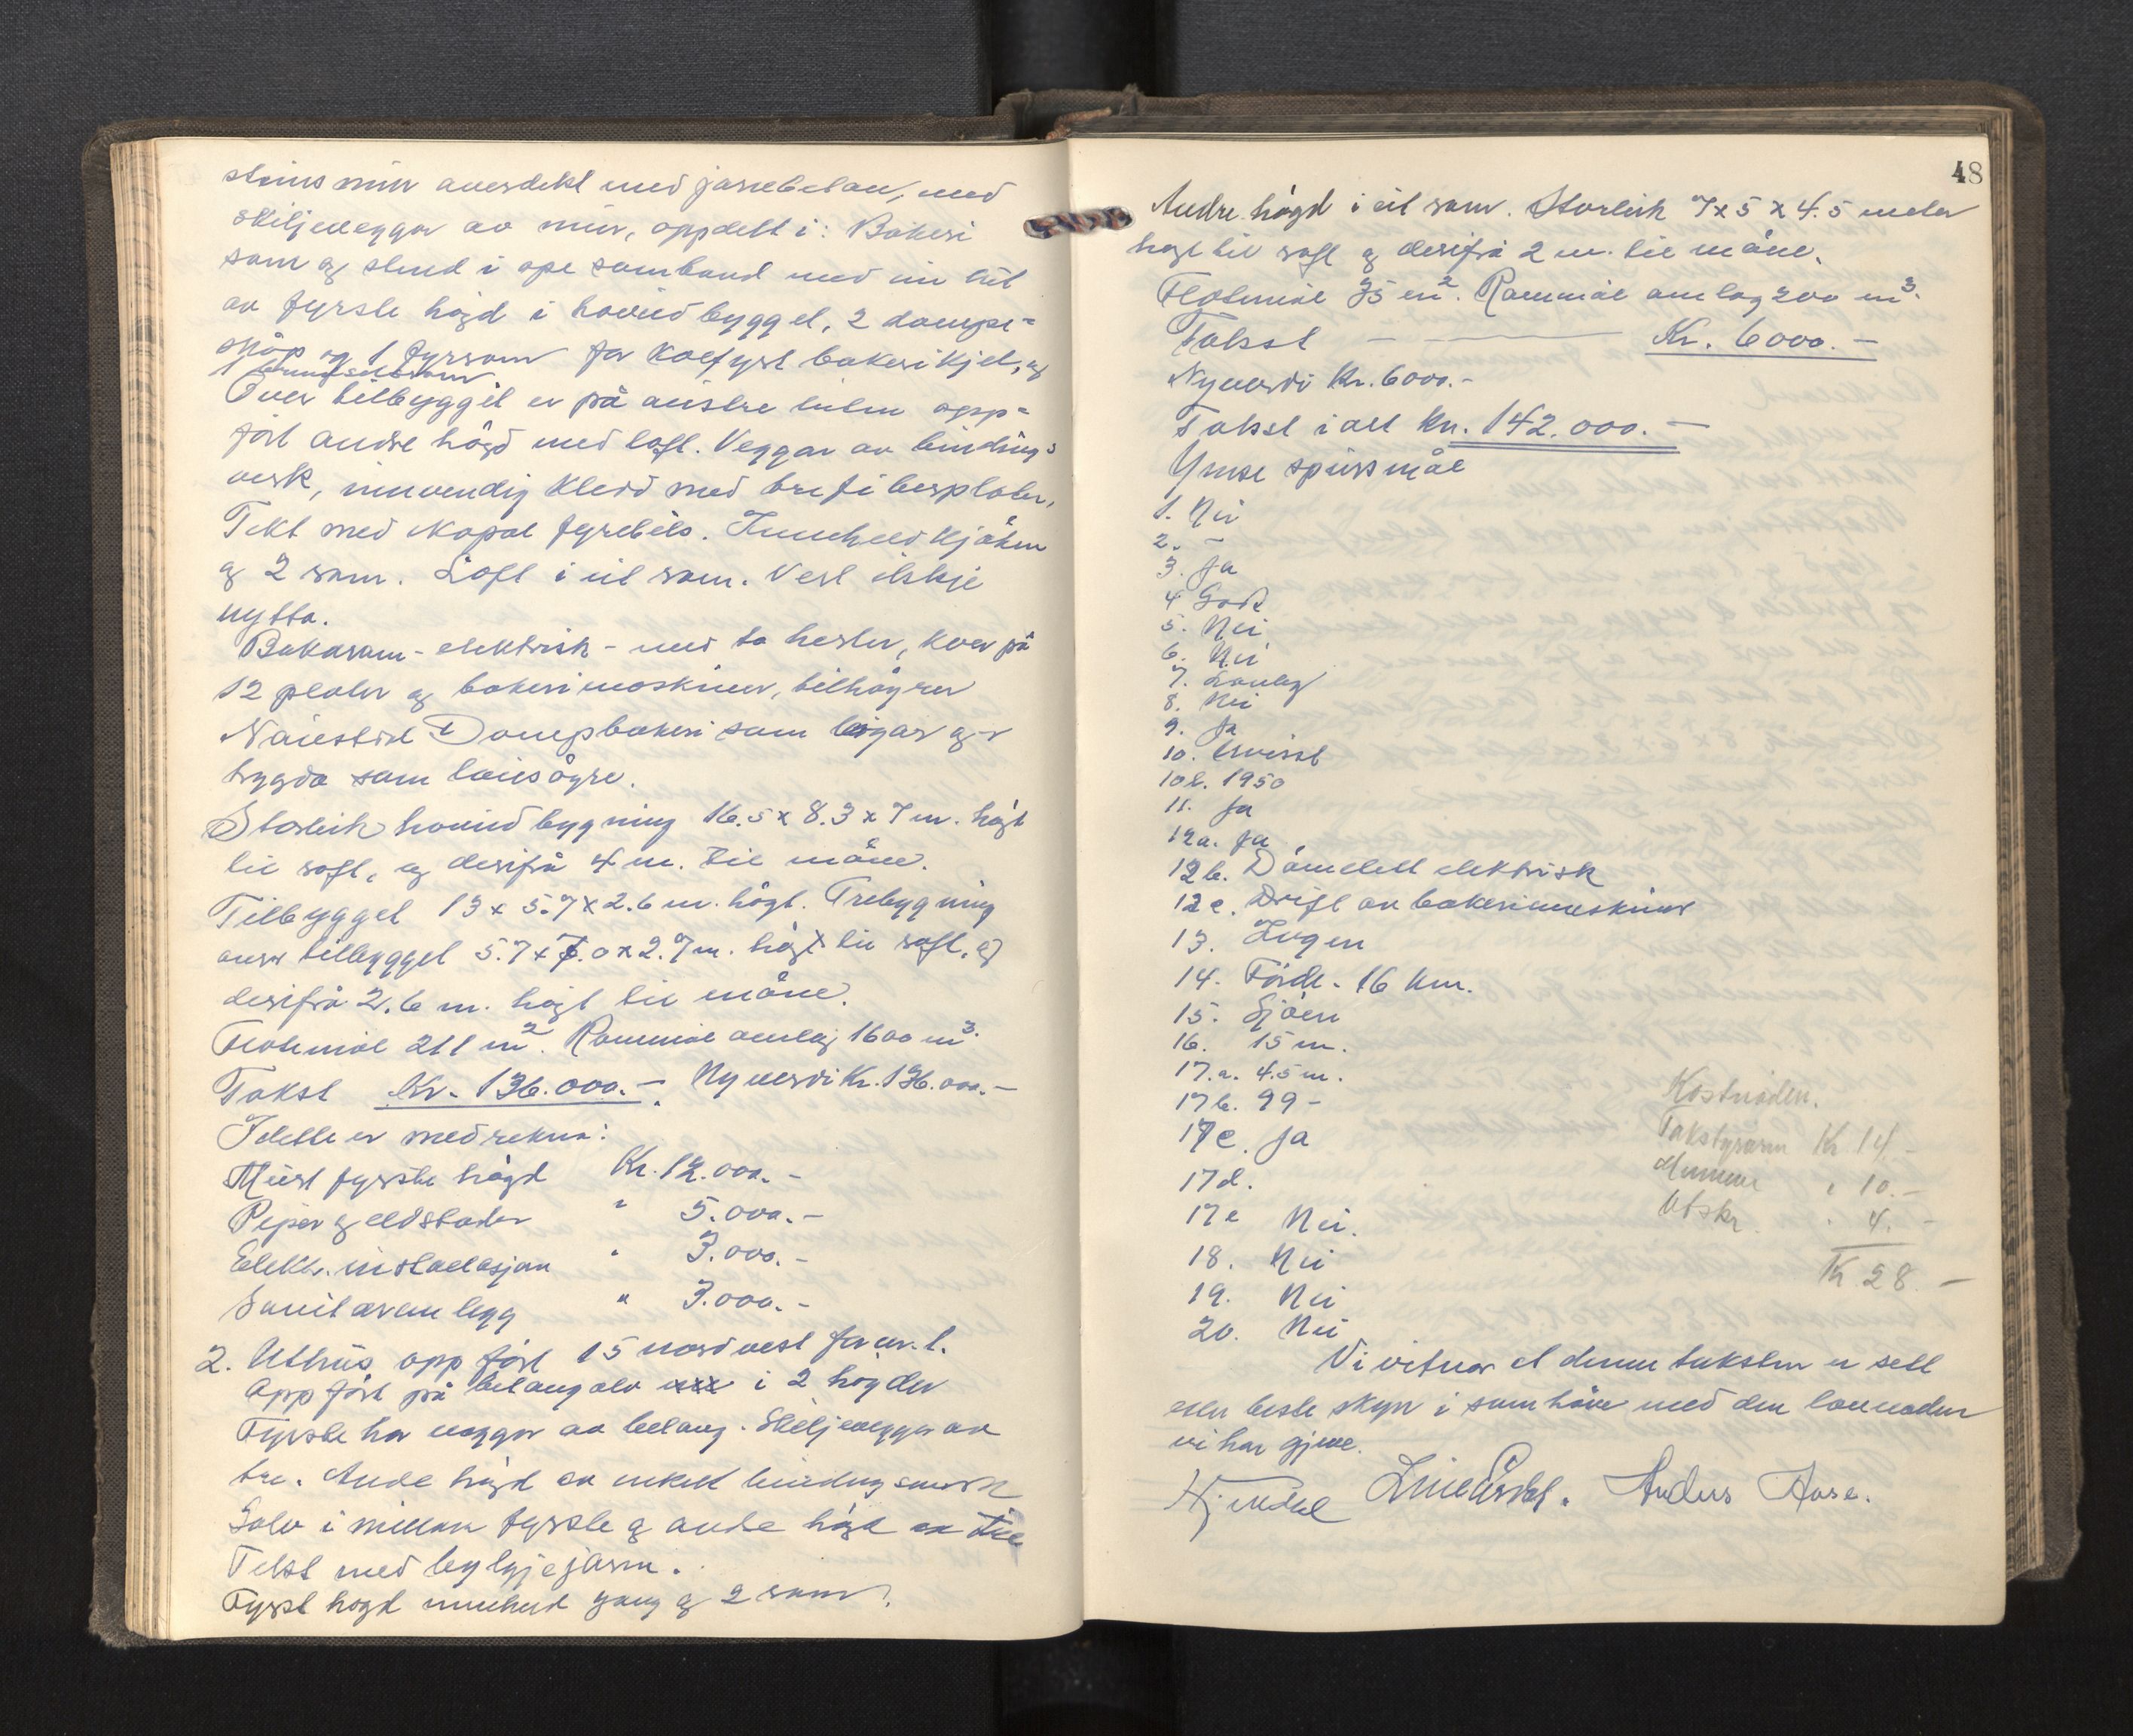 steins mur overdekt med jarnbetong, med
skiljeveggar av mur, oppdelt i: Bakeri
som og stend i ope samband med ein lut
av fyrste høgd i hovudbygget, 2 dampe=
skåp og 1 fyrrom for kolefyrt bakerikjel, og
1
Over tilbygget er på austre luten opp=
ført andre høgd med loft. Veggar av bindings
verk, innvendig kledd med trefiberplater.
Tekt med Kopal fyrebils. Innheld kjøken
og 2 rom. Loft i eit rom. Vert ikkje
nytta.
Bakaromn - elektrisk - med to herder, kver på
12 plater og bakerimaskiner, tilhøyrer
Naustdal Dampbakeri som leigar
bygda som lausøyre.
Storleik hovudbygning 16.5 x 8.3 x 7 m. høgt
til roft, og derifrå 4 m. til møne.
Tilbygget 13 x 5.7 x 2.6 m. høgt. Trebygning
over tilbygget 5.7 x 7.0 x 2.7 m. høgt til roft, og
derifrå 2.6 m. høgt til møne.
Flatemål 211 m². Rommål omlag 1600 m³.
Takst Kr. 136.000.- Nyverdi Kr. 136.000.-
I dette er medrekna:
Murt fyrste høgd Kr. 12.000.-
Piper og eldstader " 5.000.-
Elektr. installasjon " 3.000.-
Sanitæranlegg " 3.000.-
2. Uthus oppført 15 nordvest for nr. 1.
Oppført på betongolv xxx i 2 høgder
Fyrste har veggar av betong. Skiljeveggar av
tre. Andre høgd av enkelt bindingsverk
Golv i millom fyrste og andre høgd av tre
Tekt med bylgjejarn.
Fyrst høgd innheld gang og 2 rom.
48
Andre høgd i eit rom. Storleik 7 x 5 x 4.5 meter
høgt til roft og derifrå 2 m. til møne.
Flatemål 35 m². Rommål omlag 200 m³.
Takst - Kr. 6000.-
Nyverdi Kr. 6000.-
Takst i alt kr. 142.000.-
Ymse spursmål
1. Nei
2. -
3. Ja
4 God
5. Nei
6. Nei
7. Lovleg
8. Nei
9. Ja
10. Uvisst
10 b. 1950
11. Ja
12a. Ja
12 b. Dåmelell elektrisk
12 c. Drift av bakerimaskiner
13. Ingen
14. Førde - 16 km.
15. Sjøen
16. 15 m.
17.a. 4.5 m.
17 b. 99 -
17c. Ja
17d.
17e Nei.
18. Nei
19. Nei
20. Nei
Kostnaden.
Takstgjerarn Kr 14 -
" 10.-
Utskr. " 4. -
Kr 28 -
Vi vitnar at denne taksten er sett
etter beste skyn i samhøve med den lovnaden
vi har gjeve.
Anders Aase.